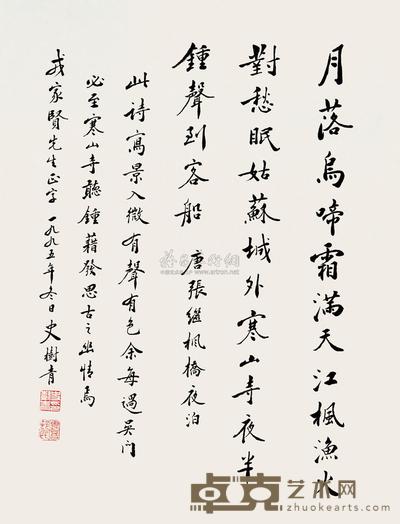 月落烏啼霜滿天江楓漁火
對愁眠姑蘇城外寒山寺夜半
鍾聲到客船 唐張繼楓橋夜泊
此詩寫景入微有聲有色余每過吳門
必至寒山寺聽鍾藉發思古之幽情焉
家賢先生正字 一九九五年冬日 史樹青
卓克艺术网
zhuokearts.com
www.artron.net